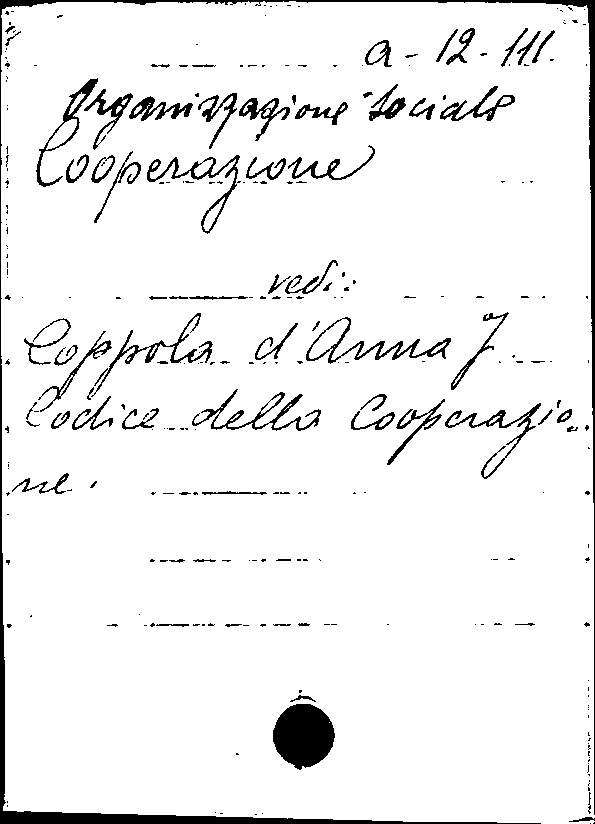 a-12-111.
Organizzazione Sociale
Cooperazione
vedi:
Coppola d'Anna J
Codice della Cooperazio
ne.